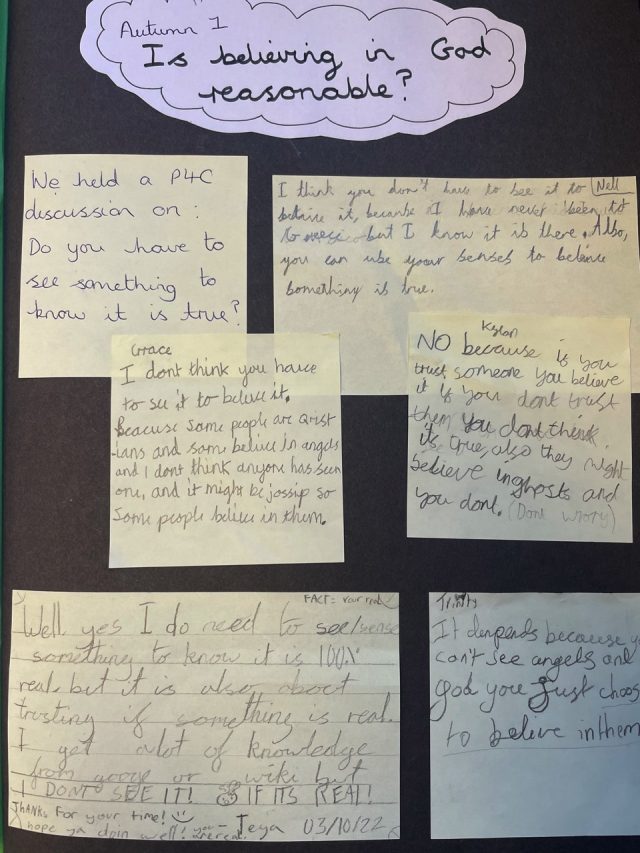 Autumn 1
Is believing in God
reasonable?
We held a P4C
discussion on:
Do you have to
see something to
know it is true?
Nell
I think you don't have to see it to
belive it, because I have never been to
but I know it is there. Also,
you can use your senses to beleive
something is true.
Grace
I dont think you have
to see it to beleve it.
Beacuse some people are Crist
ians and some belive in angels
and I dont think anyone has seen
one, and it might be jossip so
some people belive in them.
Kylan
NO because if you
trust someone you believe
it if you dont trust
them you dont think
its true, also they might
believe in ghosts and
you dont. (Dont worry)
FACT = your real
Well yes I do need to see/sense
something to know it is 100%
real. but it is also about
trusting if something is real.
I get alot of knowledge
from google or wiki but
I DONT SEE IT! IF ITS REAL!
THANKS For your time!
hope ya doin well! - Teya 03/10/22
Trinity
It denpends because y
can't see angels and
god you just choos
to belive in them